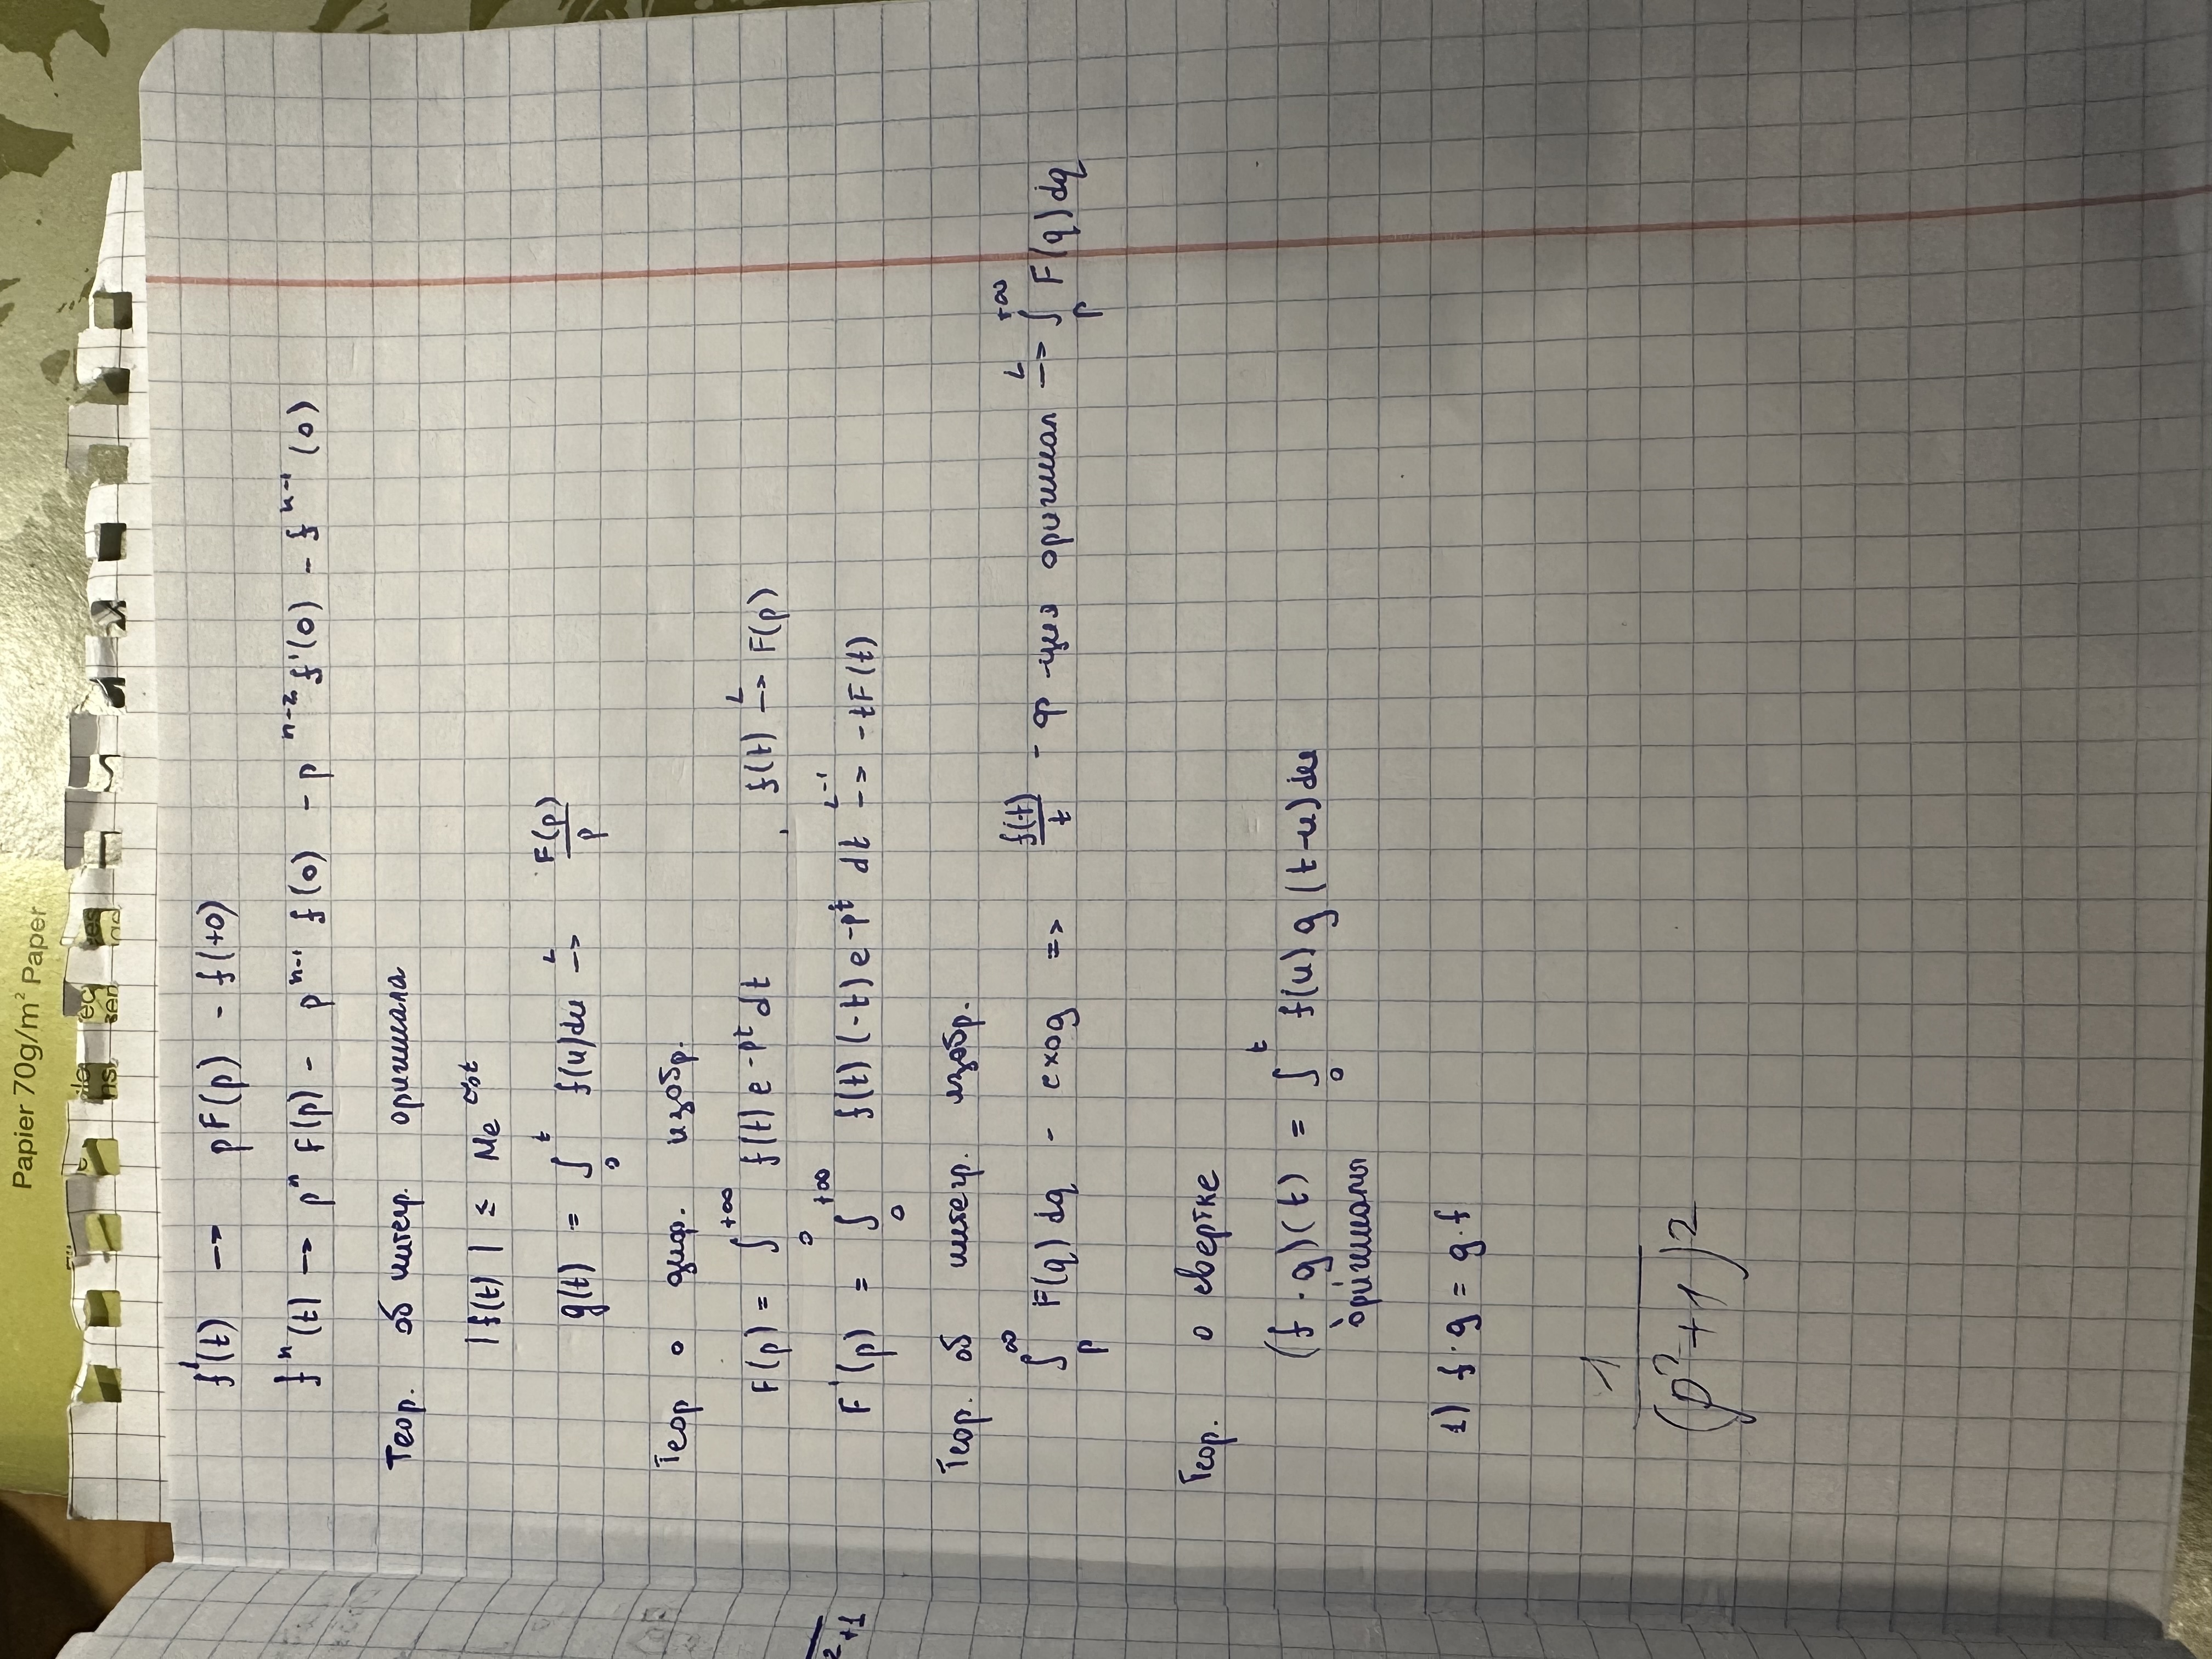 Papier 70g/m² Paper
f'(t) → pF(p) - f(+0)
fⁿ(t) → pⁿ F(p) - pⁿ⁻¹ f(0) - pⁿ⁻² f'(0) - fⁿ⁻¹ (0)
Теор. об интегр. оригинала
|f(t)| ≤ Me^σ₀t
g(t) = ∫₀^t f(u)du →^L F(p)/p
Теор о диф. изобр.
F(p) = ∫₀^+∞ f(t) e^-pt dt , f(t) →^L F(p)
²+1
F'(p) = ∫₀^+∞ f(t) (-t) e^-pt dt →^L⁻¹ -tF(t)
Теор. об интегр. изобр.
∫_p^∞ F(q)dq - сход => f(t)/t - ф-ция оригинал →^L ∫_p^+∞ F(q)dq
Теор. о свертке
(f · g)(t) = ∫₀^t f(u) g (t-u) du
оригиналы
1) f · g = g · f
1/(p²+1)²